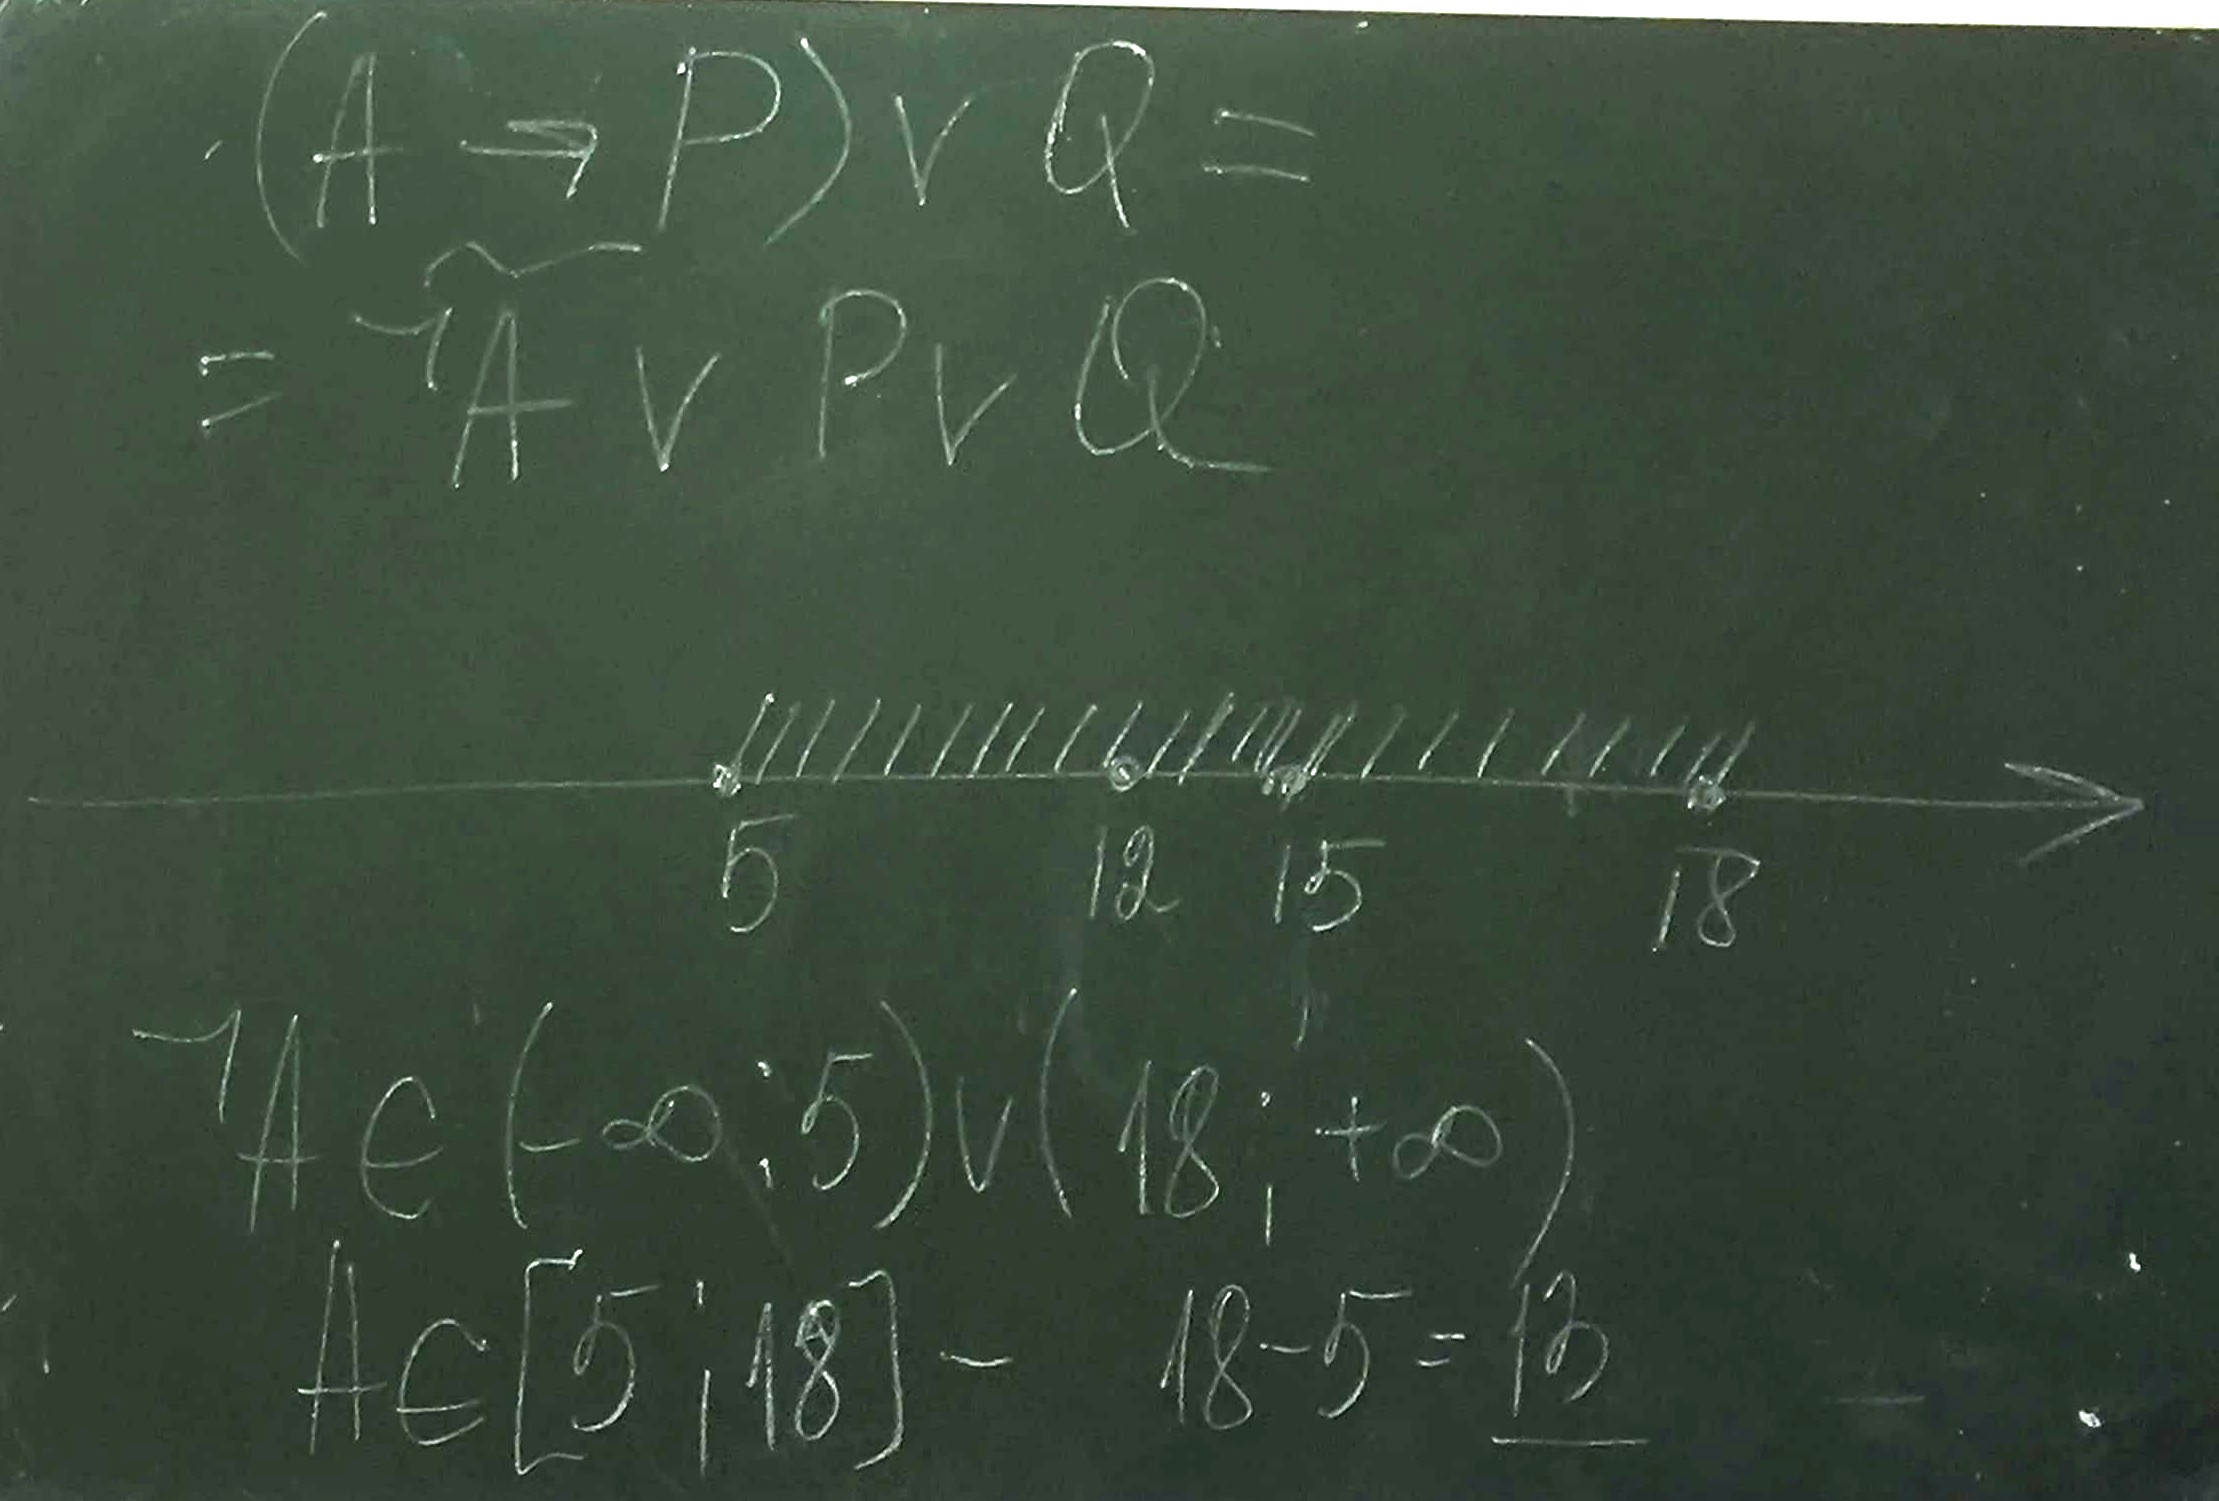 (A → P) ∨ Q =
= ¬A ∨ P ∨ Q
5 12 15 18
¬A ∈ (-∞; 5) ∨ (18; +∞)
A ∈ [5; 18] - 18-5 = 13